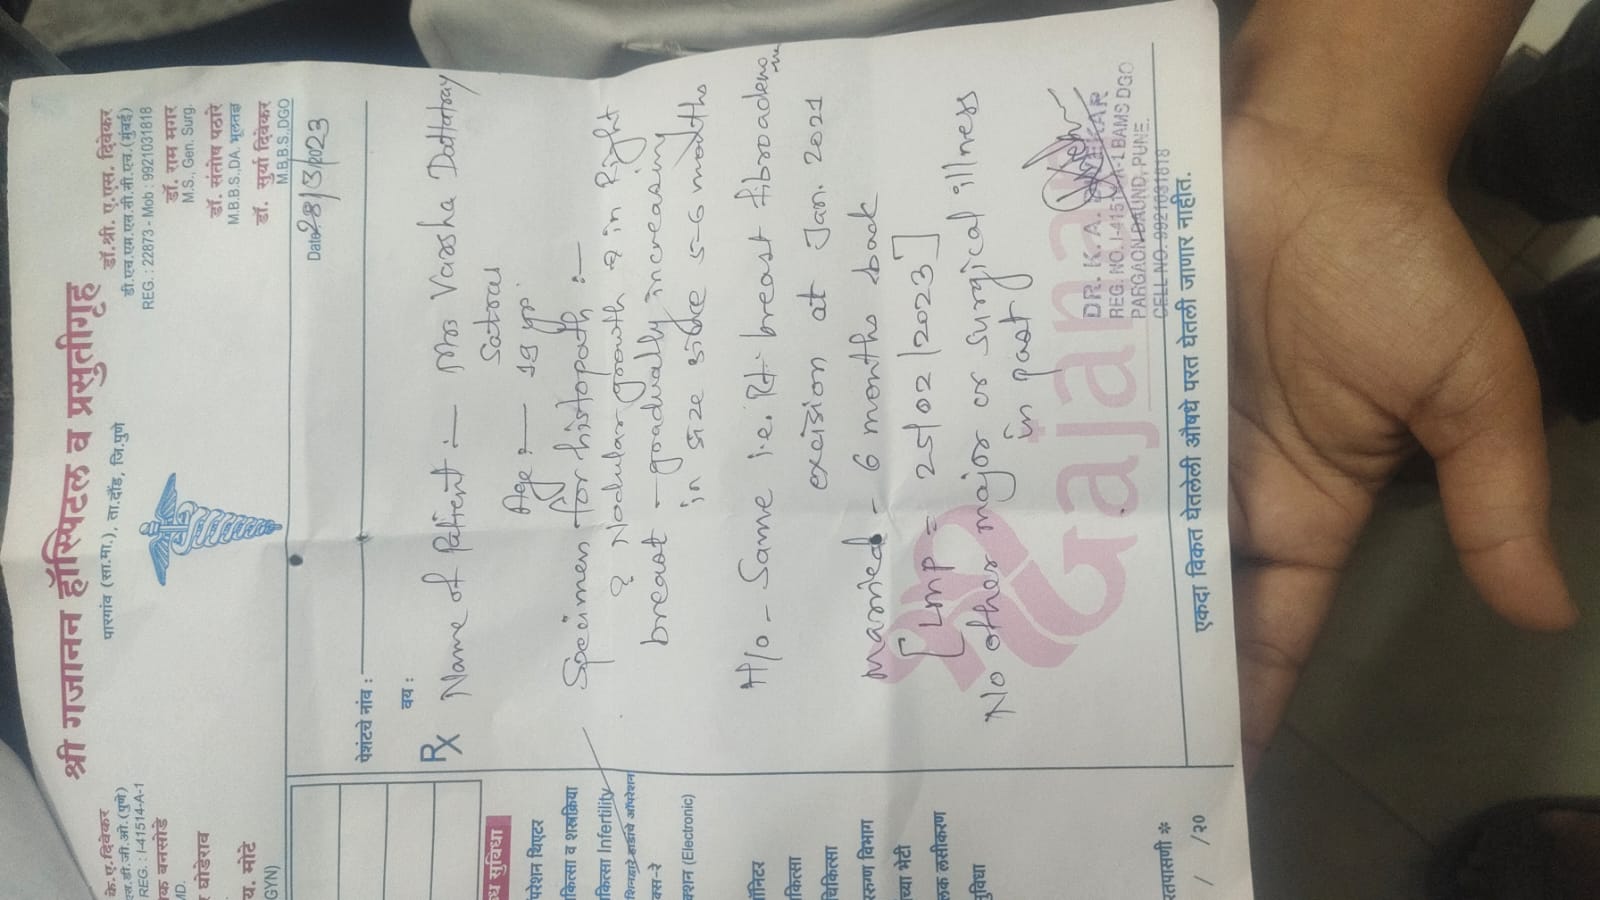 श्री गजानन हॉस्पिटल व प्रसुतीगृह
पारगांव (सा.मा.), ता.दौंड, जि.पुणे
के.ए.दिवेकर
एस.डी.जी.ओ.(पुणे)
REG. : I-41514-A-1
क बनसोडे
MD.
घोडेराव
य. मोटे
GYN)
डॉ.श्री. ए.एस. दिवेकर
डी.एच.एम.एस.सी.सी.एच.(मुंबई)
REG. : 22873 - Mob : 9921031818
डॉ. राम मगर
M.S., Gen. Surg.
डॉ. संतोष पठारे
M.B.B.S.,DA. भूलतज्ञ
डॉ. सुर्या दिवेकर
M.B.B.S.,DGO
Date 28/3/2023
पेशंटचे नांव :
वय :
Rx
Name of Patient :- Mrs Varsha Dattatray
Satras
Age :- 19 yr.
Specimen for histopath :-
? Nodular growth in Right
breast - gradually increasing
in size since 5-6 months
H/o - Same i.e. Rt. breast fibroadenoma
excision at Jan. 2021
married - 6 months back
[LMP = 25/02/2023]
No other major or surgical illness
in past
श्री gajanan
DR. K. A.
REG. NO. I-41514-A-1 BAMS DGO
PARGAON DAUND, PUNE.
CELL NO. 9921031818
ध सुविधा
परेशन थिएटर
कित्सा व शस्त्रक्रिया
कित्सा Infertility
क्स-रे
क्शन (Electronic)
ॉनिटर
कित्सा
चिकित्सा
ररुग्ण विभाग
च्या भेटी
लक लसीकरण
सुविधा
रतपासणी *
/ /२०
एकदा विकत घेतलेली औषधे परत घेतली जाणार नाहीत.